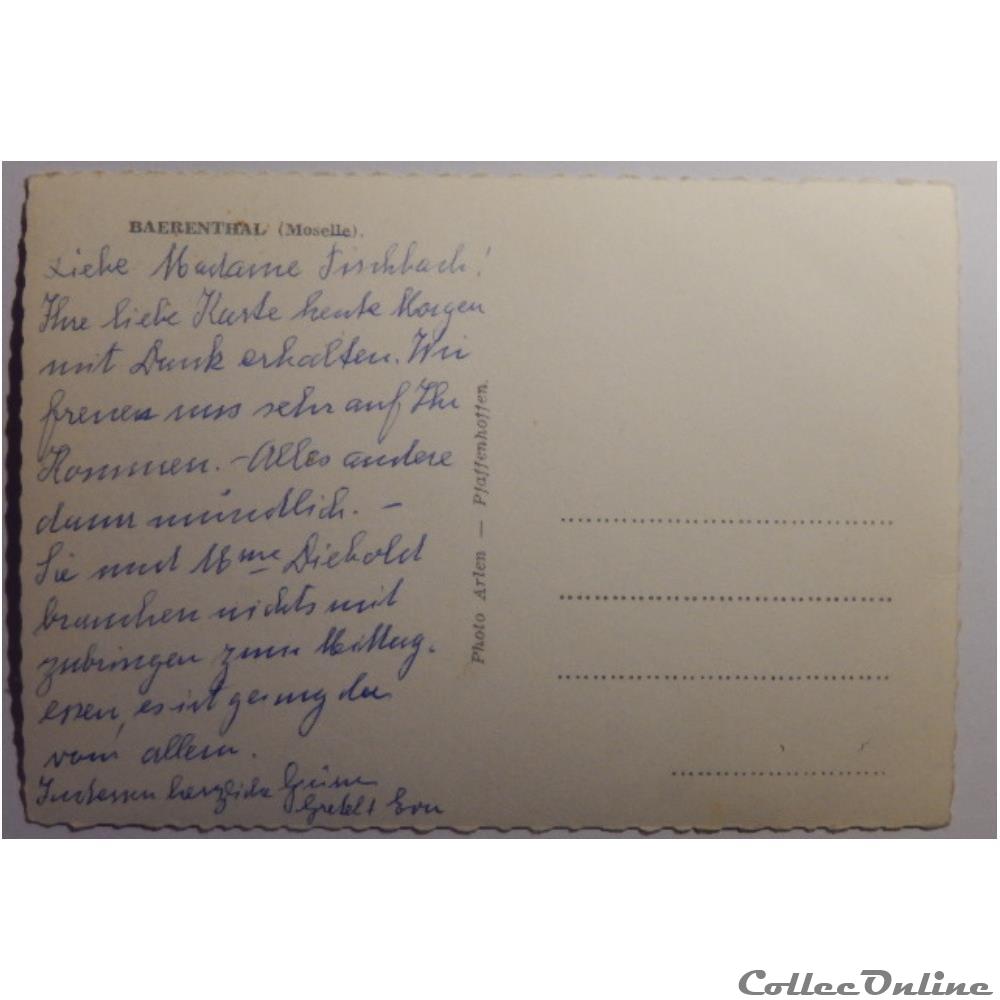 BAERENTHAL (Moselle).
Liebe Madame Fischbach!
Ihre liebe Karte heute Morgen
mit Dank erhalten. Wir
freuen uns sehr auf Ihr
Kommen. – Alles andere
dann mündlich. –
Sie und Mme Diebold
brauchen nichts mit
zubringen zum Mittag-
essen, es ist genug da
von allem.
Indessen herzliche Grüsse
Photo Arlen — Pfaffenhoffen.
CollecOnline